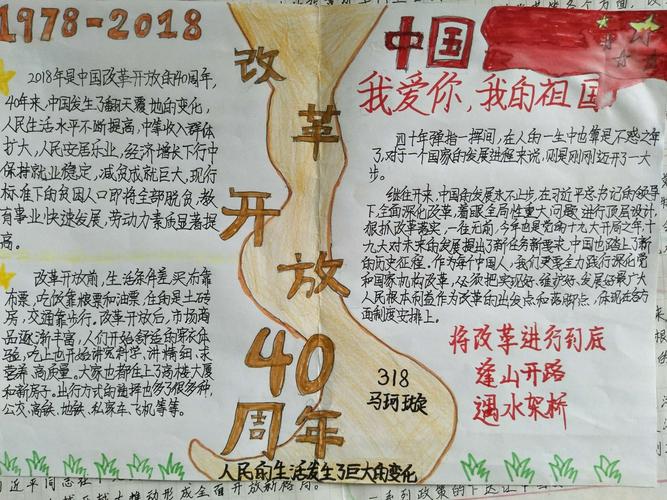 1978-2018
2018年是中国改革开放的40周年,
40年来,中国发生了翻天覆地的变化,
人民生活水平不断提高,中等收入群体
扩大,人民安居乐业,经济增长下行中
保持就业稳定,减贫成就巨大,现行
标准下的贫困人口即将全部脱贫,教
育事业快速发展,劳动力素质显著提
高。
改革开放前,生活条件差,买布靠
布票,吃饭靠粮票和油票,住的是土砖
房,交通靠步行。改革开放后,市场商
品逐渐丰富,人们开始舒适的
验,吃上也开始讲究科学,讲精细,求
营养,高质量,大家也都住上了高楼大厦
和新房子。出行方式的选择也多了很多种,
公交、高铁、地铁、私家车、飞机等等。
改
革
开
放
40
周年
人民的生活发生了巨大的变化
318
马珂璇
中国
我爱你,我的祖国
四十年弹指一挥间,在人的一生中也算是不惑之年
了,对于一个国家的发展进程来说,则刚刚迈开了一大
步。
继往开来,中国的发展永不止步,在习近平总书记的领导
下,全面深化改革,着眼全局性重大问题进行顶层设计,
狠抓改革落实,一往无前,今年也是党的十九大开局之年,十
九大对未来的发展提出了新任务新要求,中国也踏上了新
的历史征程。作为每个中国人,我们要全力践行深化党
和国家机构改革,必须把实现好、维护好、发展好最广大
人民根本利益作为改革的出发点和落脚点,体现在各方
面制度安排上。
将改革进行到底
逢山开路
遇水架桥